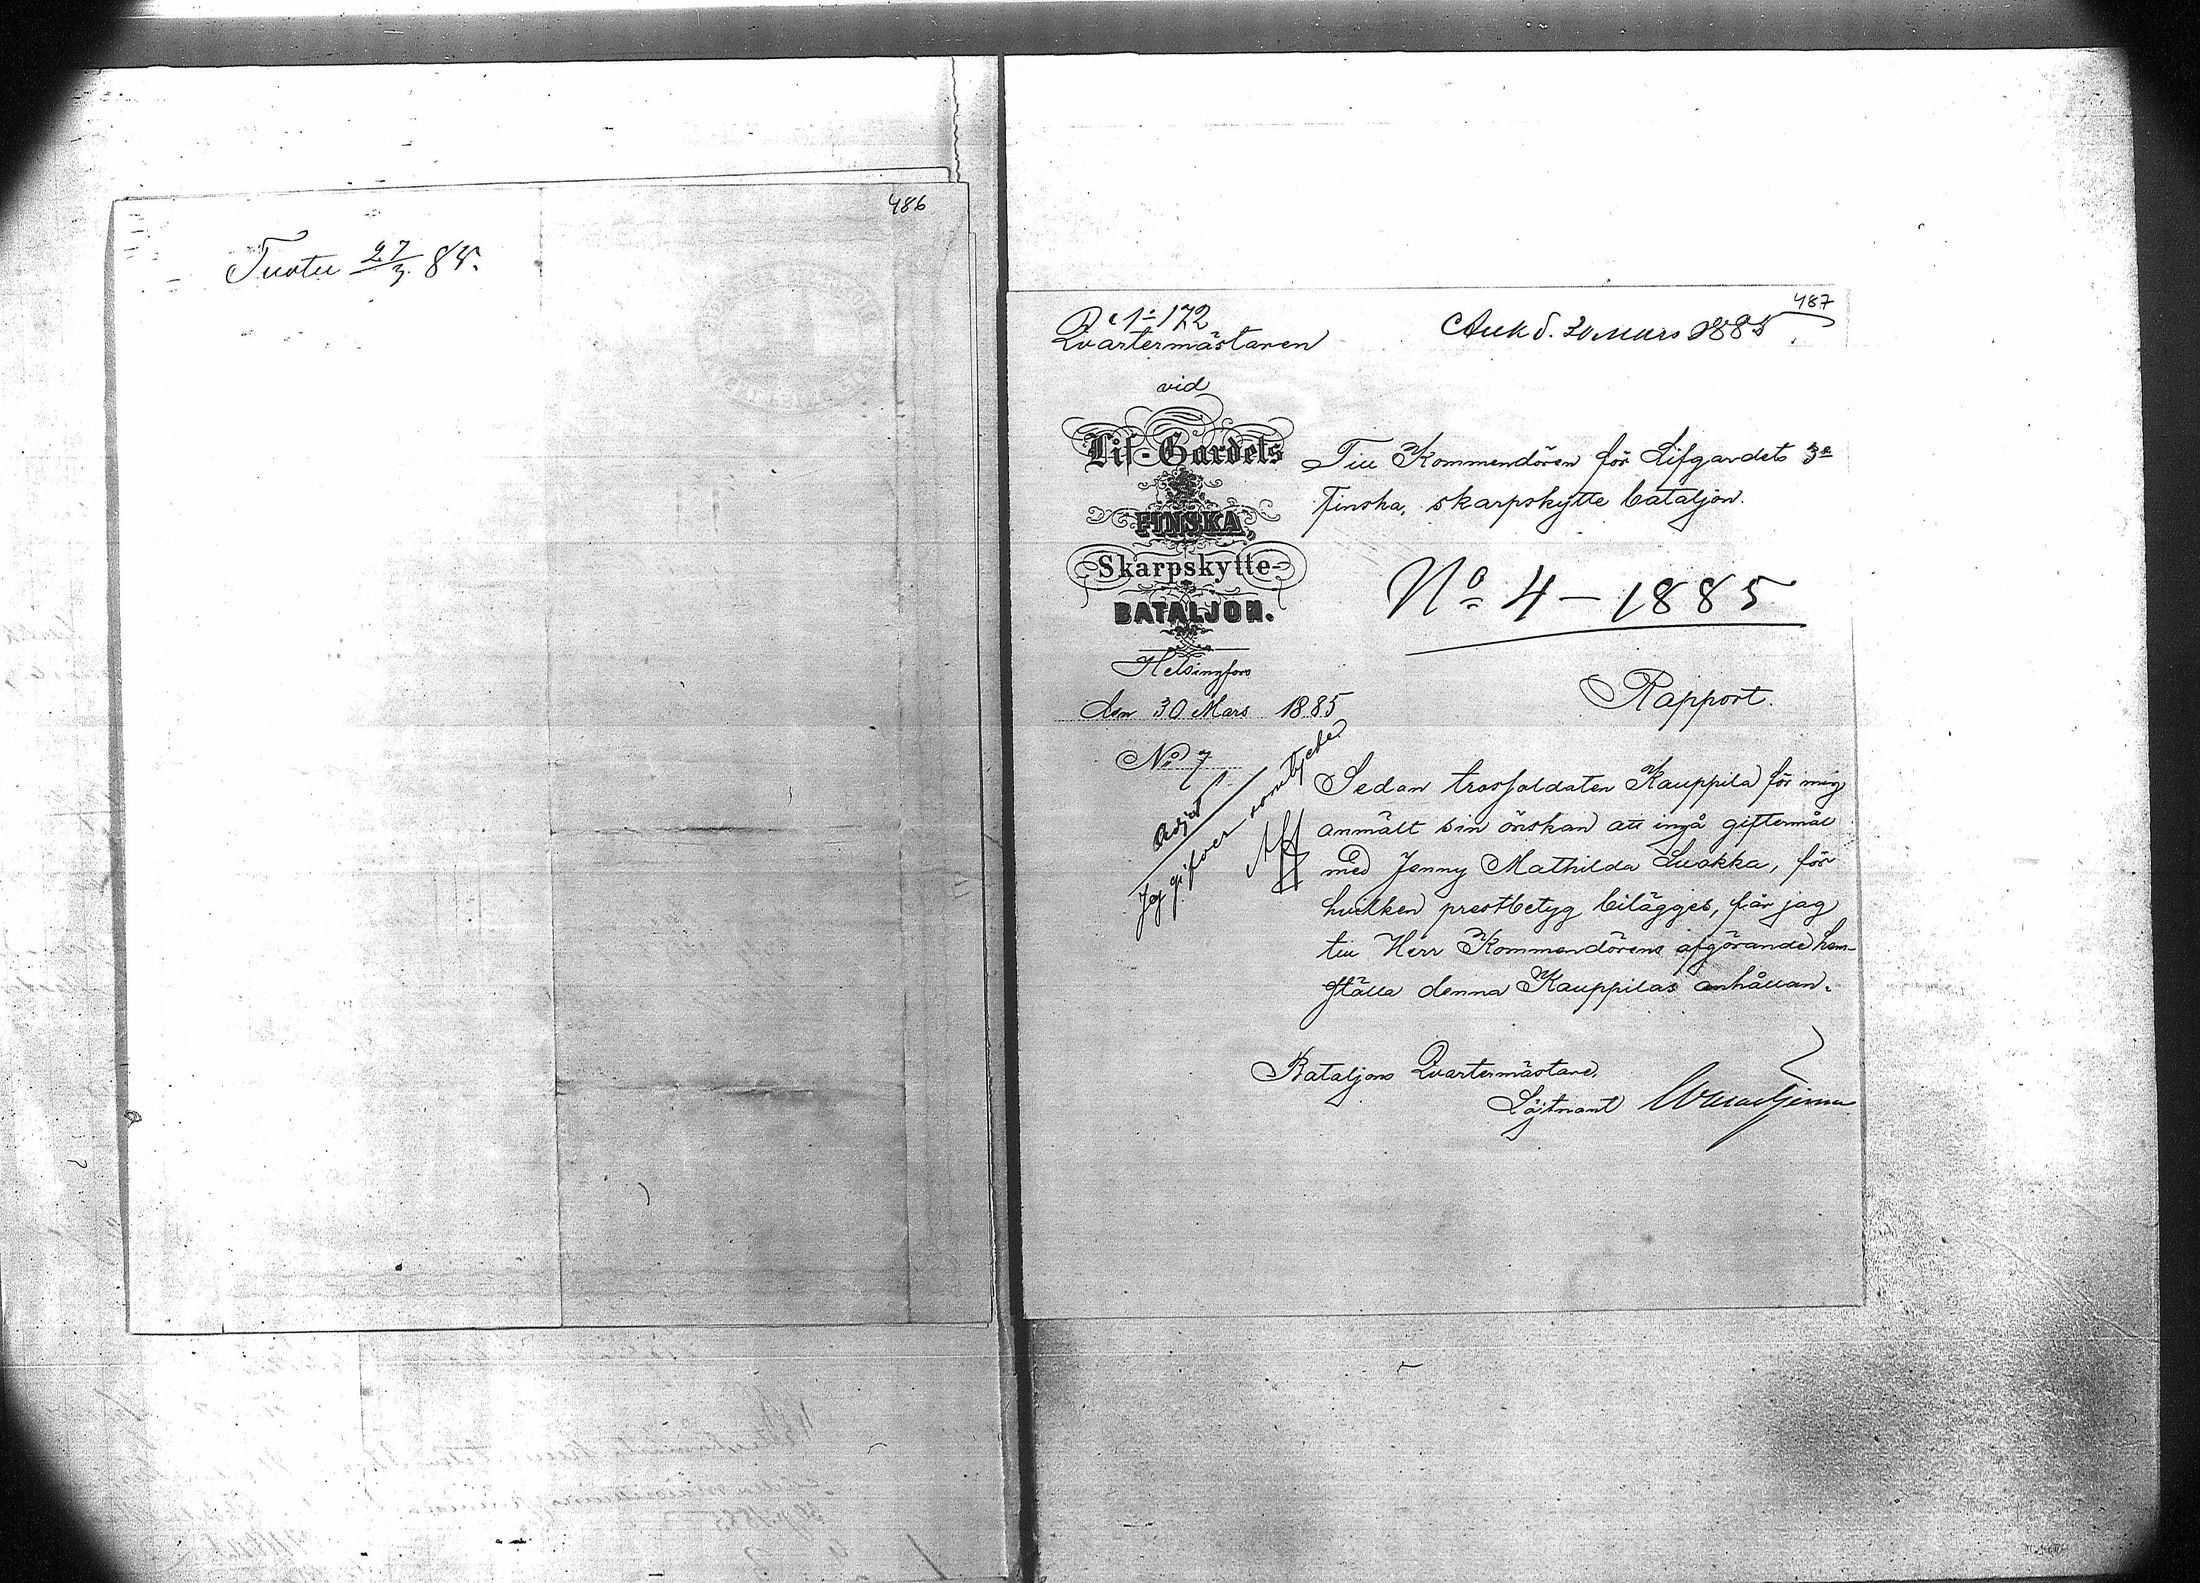 486
Tuotu 27/3 85.
487
D N:o 172
Ank d. 30 Mars 1885
Qvartermästaren
vid
Lif-Gardets
FINSKA,
Skarpskytte-
BATALJON.
Helsingfors
den 30 Mars 1885
No 7
Till Kommendören för Lifgardets 3e
Finska, skarpskytte bataljon.
No 4 - 1885
Rapport.
Sedan trossoldaten Kauppila för mig
anmält sin önskan att ingå giftermål
med Jenny Mathilda Luokka, för
hvilken prestbetyg bilägges, får jag
till Herr Kommendörens afgörande hem-
ställa denna Kauppilas anhållan.
Jag gifver
Bataljons Qvartermästare,
Löjtnant